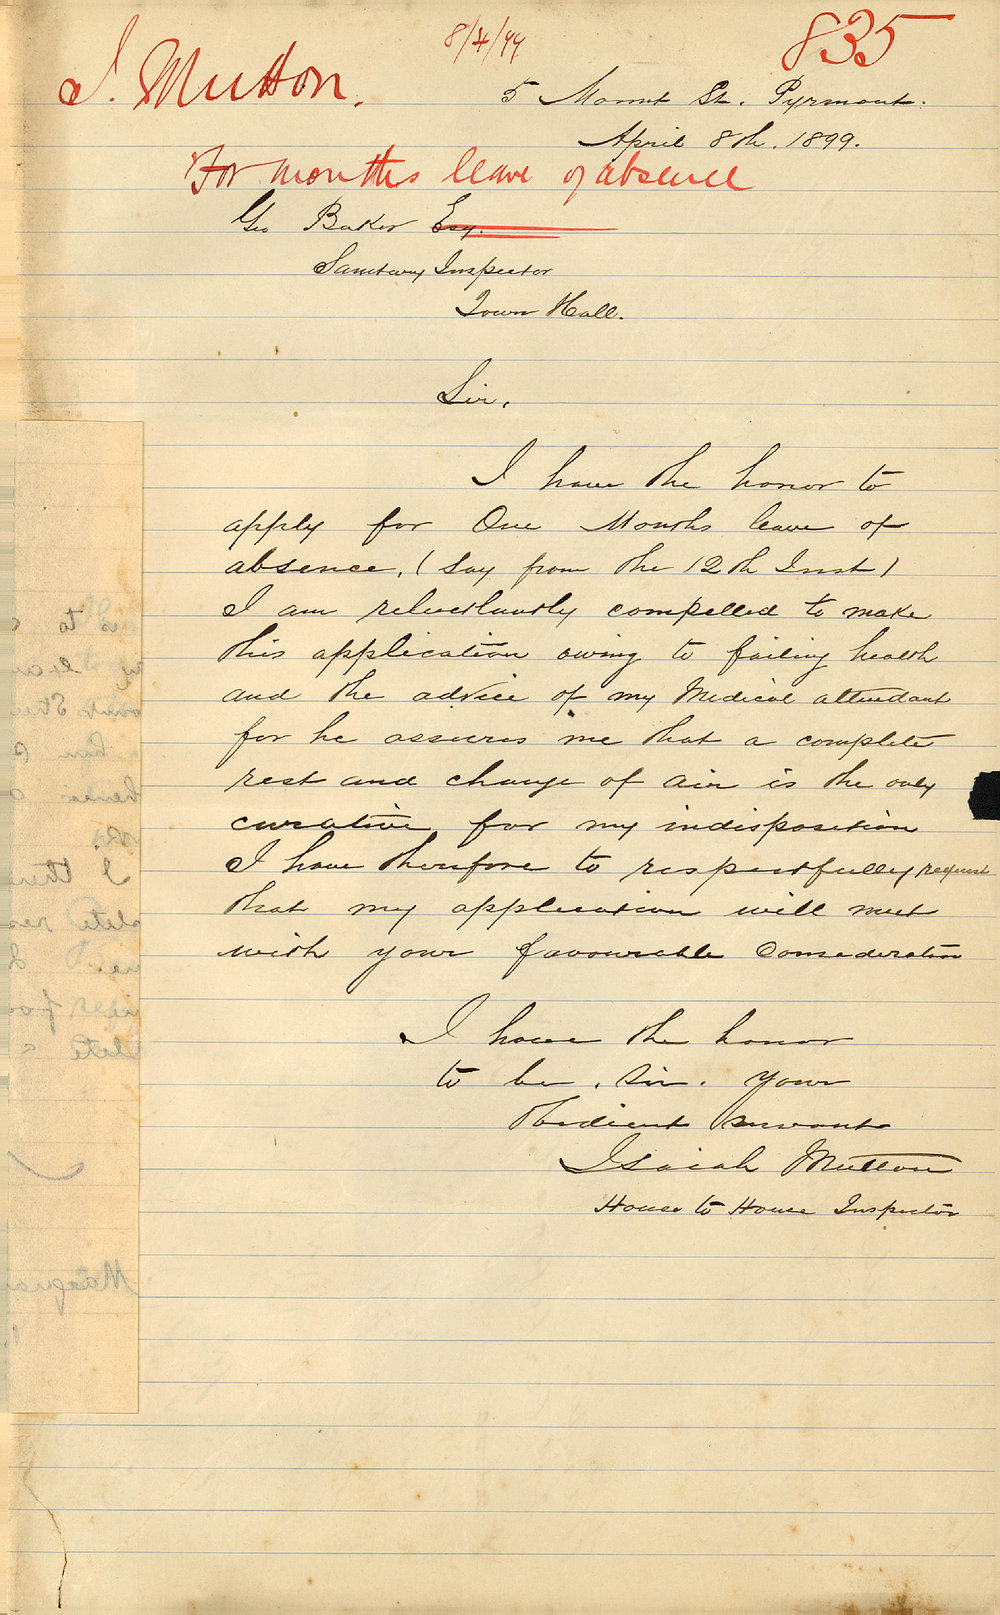 8/4/99
835
I. Mutton.
5 Mount St. Pyrmont.
April 8th. 1899.
For months leave of absence
Geo Baker Esq.
Sanitary Inspector
Town Hall.
Sir,
I have the honor to
apply for One Months leave of
absence, (say from the 12th Inst)
I am reluctantly compelled to make
this application owing to failing health
and the advice of my Medical attendant
for he assures me that a complete
rest and change of air is the only
curative for my indisposition
I have therefore to respectfully request
that my application will meet
with your favourable Consideration
I have the honor
to be, Sir. your
Obedient servant
Isaiah Mutton
House to House Inspector